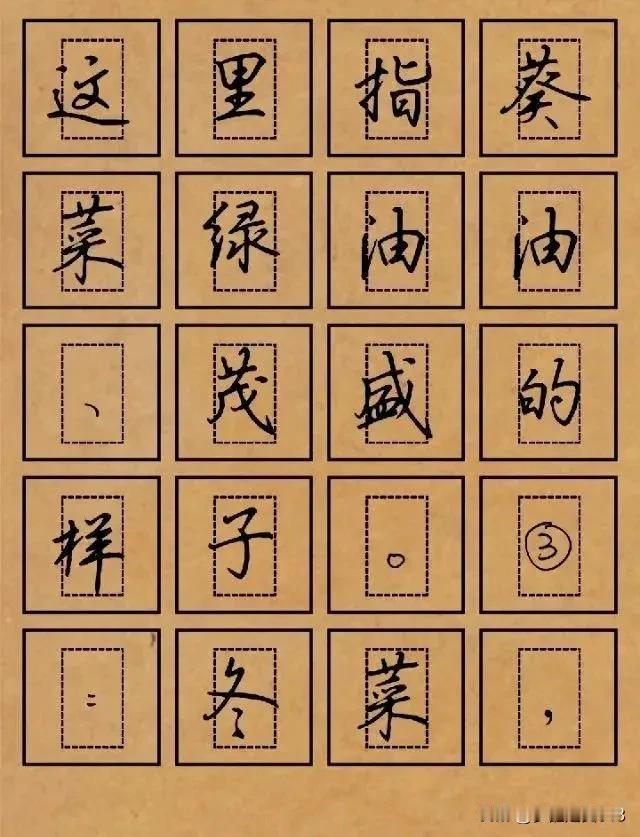 这里指葵
菜绿油油
、茂盛的
样子。③
：冬菜，